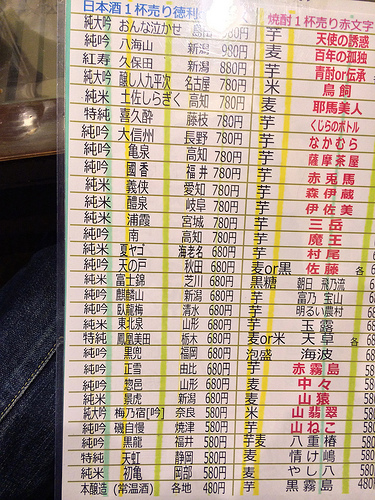 日本酒１杯売り徳利
焼酎１杯売り赤文字
純大吟 おんな泣かせ 980円
芋 天使の誘惑
純吟 八海山 新潟 980円
麦 百年の孤独
紅寿 久保田 新潟 880円
芋 青酎or伝承
純大吟 醸し人九平次 名古屋 780円
米 鳥飼
純米 土佐しらぎく 高知 780円
麦 耶馬美人
特純 喜久酔 藤枝 780円
芋 くじらのボトル
純吟 大信州 長野 780円
芋 なかむら
純吟 亀泉 高知 780円
芋 薩摩茶屋
純吟 國香 福井 780円
芋 赤兎馬
純米 義侠 愛知 780円
芋 森伊蔵
純米 醴泉 岐阜 780円
芋 伊佐美
純米 浦霞 宮城 780円
芋 三岳
純吟 南 高知 780円
芋 魔王
純米 夏ヤゴ 海老名 680円
芋 村尾
純吟 天の戸 秋田 680円
麦or黒 佐藤 各
純米 富士錦 芝川 680円
黒糖 朝日 飛乃流
純吟 麒麟山 新潟 680円
芋 富乃宝山
純吟 臥龍梅 清水 680円
芋 明るい農村
純米 東北泉 山形 680円
芋 玉露
特純 鳳凰美田 栃木 680円
麦or米 天草 各
純吟 黒兜 福岡 680円
泡盛 海波
純吟 正雪 由比 680円
芋 赤霧島
純吟 惣邑 山形 680円
麦 中々
純米 景虎 新潟 680円
麦 山猿
純大吟 梅乃宿[吟] 奈良 580円
米 山翡翠
純吟 磯自慢 焼津 580円
芋 山ねこ
純吟 黒龍 福井 580円
芋麦 八重椿 580
特純 天虹 静岡 580円
麦 情け嶋 580
純米 初亀 岡部 580円
麦 やし八 580
本醸造 (常温酒) 各地 480円
芋 黒霧島 480円